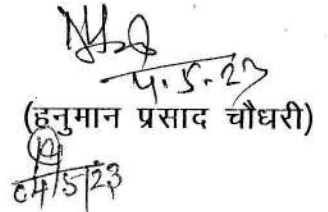 4.5.23
(हनुमान प्रसाद चौधरी)
04/5/23